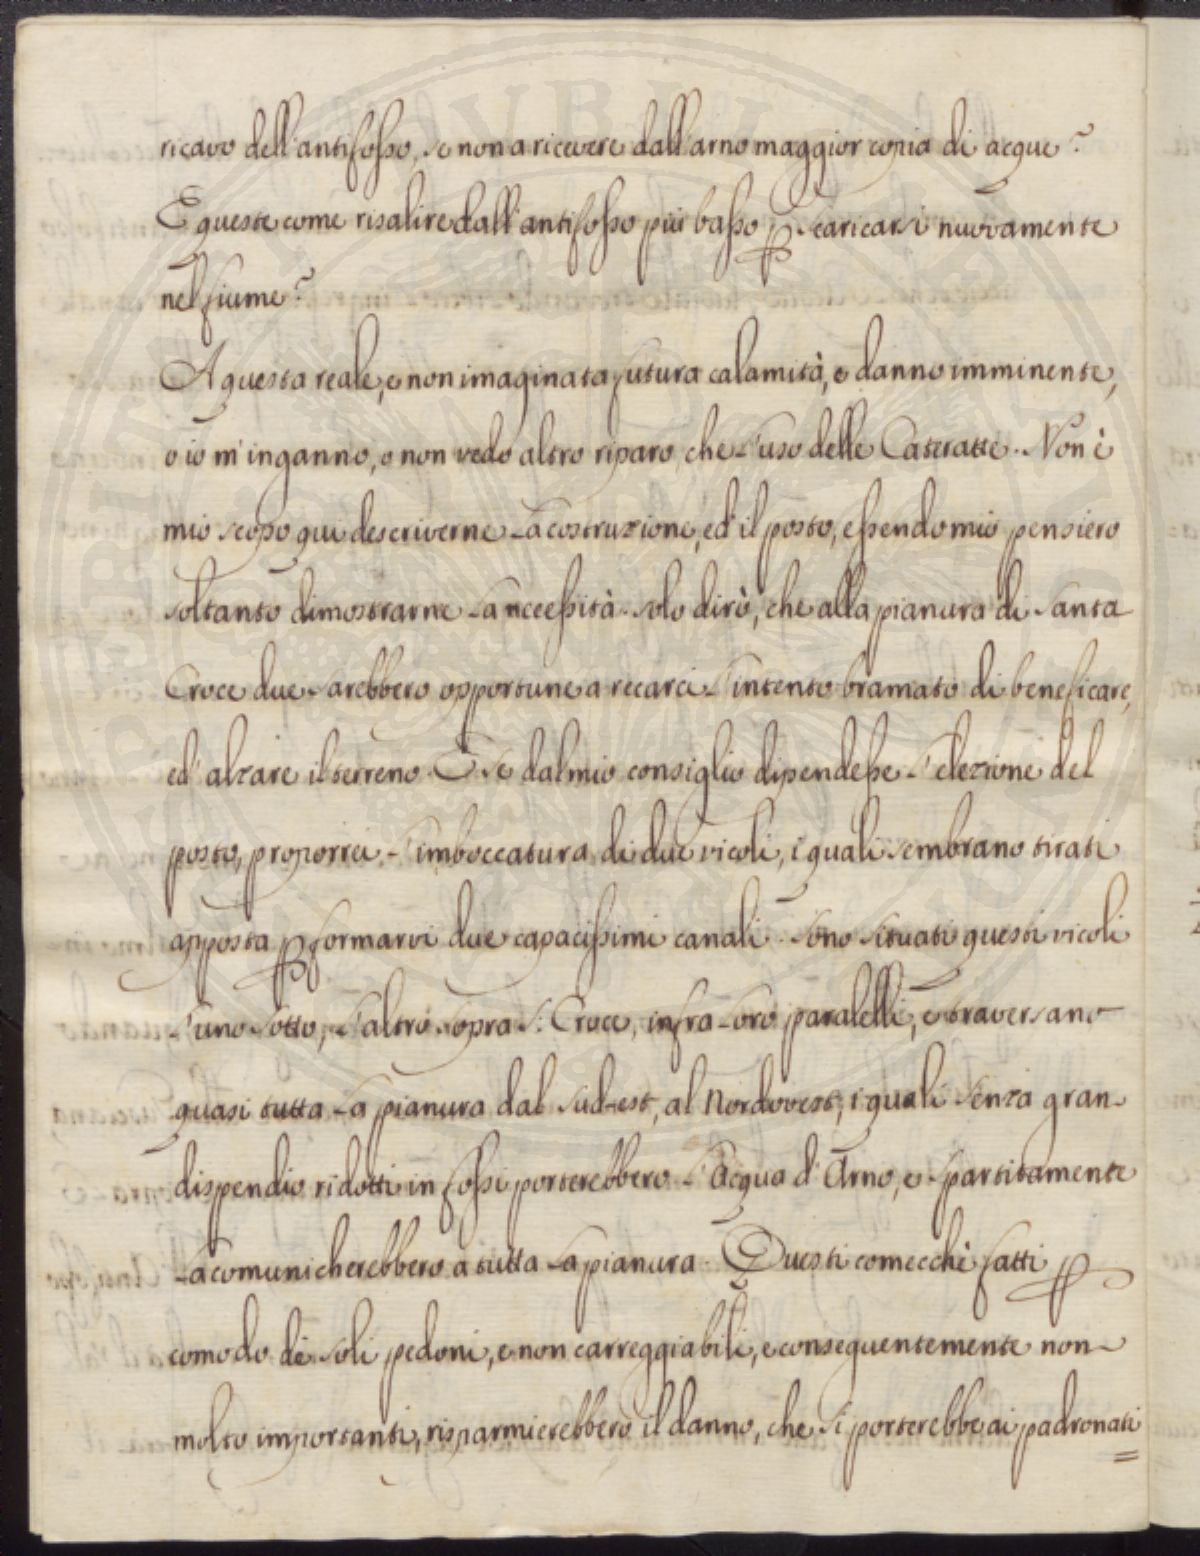 ricavo dell'antifosso, se non a ricevere dall'arno maggior copia di acque?
E queste come risalire dall'antifosso più basso p scaricarsi nuovamente
nel fiume?
A questa reale, e non imaginata futura calamità, e danno imminente,
o io m'inganno, o non vedo altro riparo, che l'uso delle Cateratte. Non è
mio scopo qui descriverne la costruzione, ed il posto, essendo mio pensiero
soltanto dimostrarne la necessità. Solo dirò, che alla pianura di Santa
Croce due sarebbero opportune a recarci l'intento bramato di beneficare,
ed' alzare il terreno. E se dal mio consiglio dipendesse l'elezione del
posto, proporrei l'imboccatura di due vicoli, i quali sembrano tirati
apposta p formarvi due capacissimi canali. Sono situati questi vicoli
l'uno sotto, l'altro sopra S: Croce, infra loro paralelli, e traversano
quasi tutta la pianura dal Sud-est, al Nordovest, i quali senza gran
dispendio ridotti in fossi porterebbero l'acqua d'Arno, e spartitamente
la comunicherebbero a tutta la pianura. Questi comecchè fatti p
comodo di soli pedoni, e non carreggiabili, e conseguentemente non
molto importanti, risparmierebbero il danno, che si porterebbe ai padronati